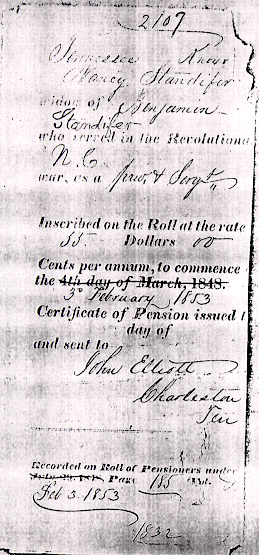 2107
Tennessee Knox
Nancy Standifer
widow of Benjamin
Standifer
who served in the Revolutiona
N. C.
war, as a priv. & Sergt.
Inscribed on the Roll at the rate
55 Dollars 00
Cents per annum, to commence
the 4th day of March, 1848.
3d February 1853
Certificate of Pension issued t
day of
and sent to
John Elliott
Charleston
Ten
Recorded on Roll of Pensioners under
Page 185 Vol.
Feb 3. 1853
1832